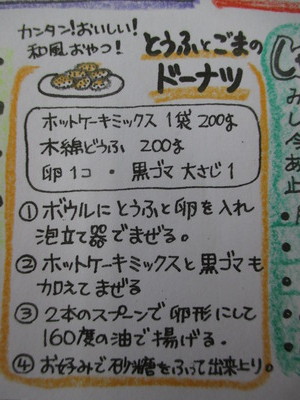 カンタン！おいしい！
和風おやつ！
とうふとごまの
ドーナツ
ホットケーキミックス 1袋 200g
木綿どうふ 200g
卵 1コ ・ 黒ゴマ 大さじ 1
① ボウルに とうふと 卵を 入れ
泡立て器でまぜる。
② ホットケーキミックスと 黒ゴマも
加えて まぜる
③ 2本のスプーンで 卵形にして
160度の油で揚げる。
④ お好みで砂糖をふって出来上り。